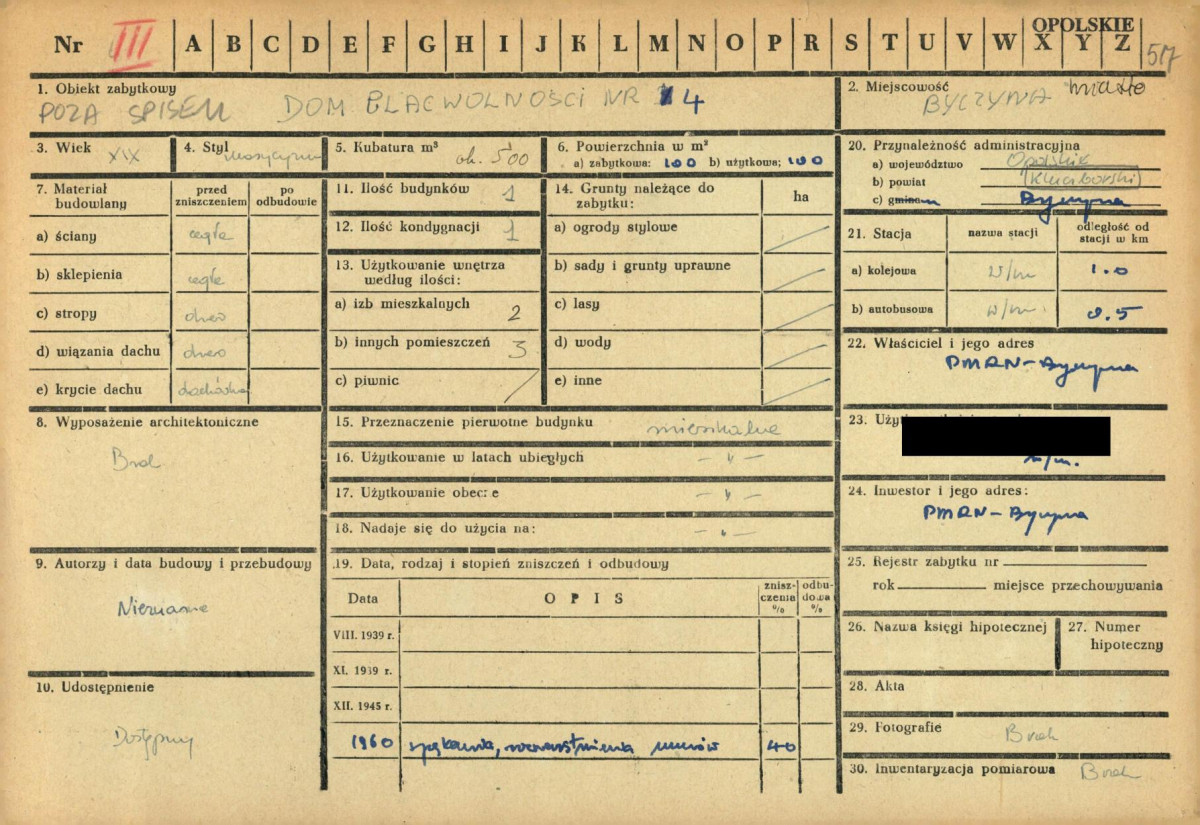 Nr III A B C D E F G H I J K L M N O P R S T U V W X Y Z
OPOLSKIE
517
1. Obiekt zabytkowy
POZA SPISEM DOM PLAC WOLNOŚCI NR 4
2. Miejscowość
BYCZYNA miasto
3. Wiek XIX
4. Styl
5. Kubatura m³ ok. 500
6. Powierzchnia w m²
a) zabytkowa: 100 b) użytkowa: 100
7. Materiał budowlany
przed zniszczeniem
po odbudowie
a) ściany cegła
b) sklepienia cegła
c) stropy drewo
d) wiązania dachu drewo
e) krycie dachu dachówka
8. Wyposażenie architektoniczne
Brak
9. Autorzy i data budowy i przebudowy
Nieznane
10. Udostępnienie
Dostępny
11. Ilość budynków 1
12. Ilość kondygnacji 1
13. Użytkowanie wnętrza
według ilości:
a) izb mieszkalnych 2
b) innych pomieszczeń 3
c) piwnic /
14. Grunty należące do
zabytku:
ha
a) ogrody stylowe
b) sady i grunty uprawne
c) lasy
d) wody
e) inne
15. Przeznaczenie pierwotne budynku mieszkalne
16. Użytkowanie w latach ubiegłych – " –
17. Użytkowanie obecne – " –
18. Nadaje się do użycia na: – " –
19. Data, rodzaj i stopień zniszczeń i odbudowy
Data OPIS zniszczenia % odbudowa %
VIII. 1939 r.
XI. 1939 r.
XII. 1945 r.
1960 spękania, rozwarstwienia murów 40
20. Przynależność administracyjna
a) województwo Opolskie
b) powiat (Kluczborski)
c) gmina Byczyna
21. Stacja
nazwa stacji
odległość od stacji w km
a) kolejowa w/m 1.0
b) autobusowa w/m. 0.5
22. Właściciel i jego adres
PMRN – Byczyna
23.
w/m.
24. Inwestor i jego adres:
PMRN – Byczyna
25. Rejestr zabytku nr
rok miejsce przechowywania
26. Nazwa księgi hipotecznej
27. Numer hipoteczny
28. Akta
29. Fotografie Brak
30. Inwentaryzacja pomiarowa Brak